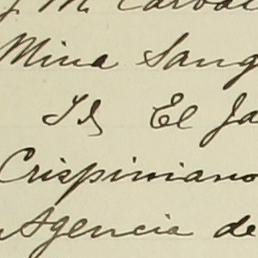 J. M. Carbal
Mina Sang
Id El Ja
Crispiniano
Agencia de